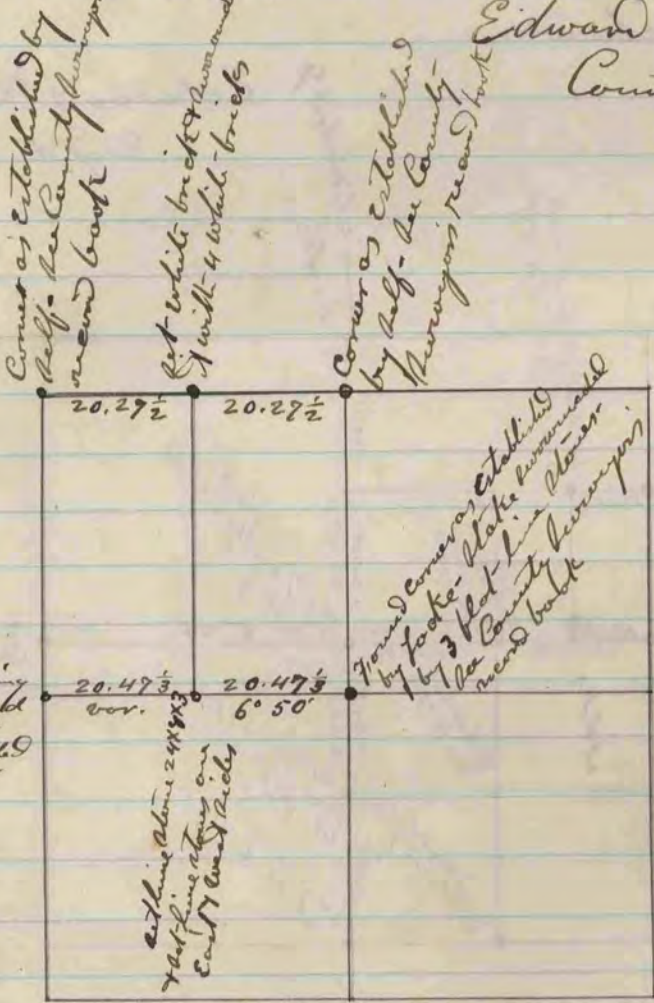 Edward
Corner as established by
self - see County Surveyors
record book
set white brick & surround
with 4 white bricks
Corner as established
by self - see County
Surveyors record book
20.27½
20.27½
Found corner as established
by Locke - stake surrounded
by 3 flat lime stones -
see County Surveyors
record book
20.47⅓
var.
20.47⅓
6° 50'
set lime stone 24x8x3
& set lime stones on
East & West sides